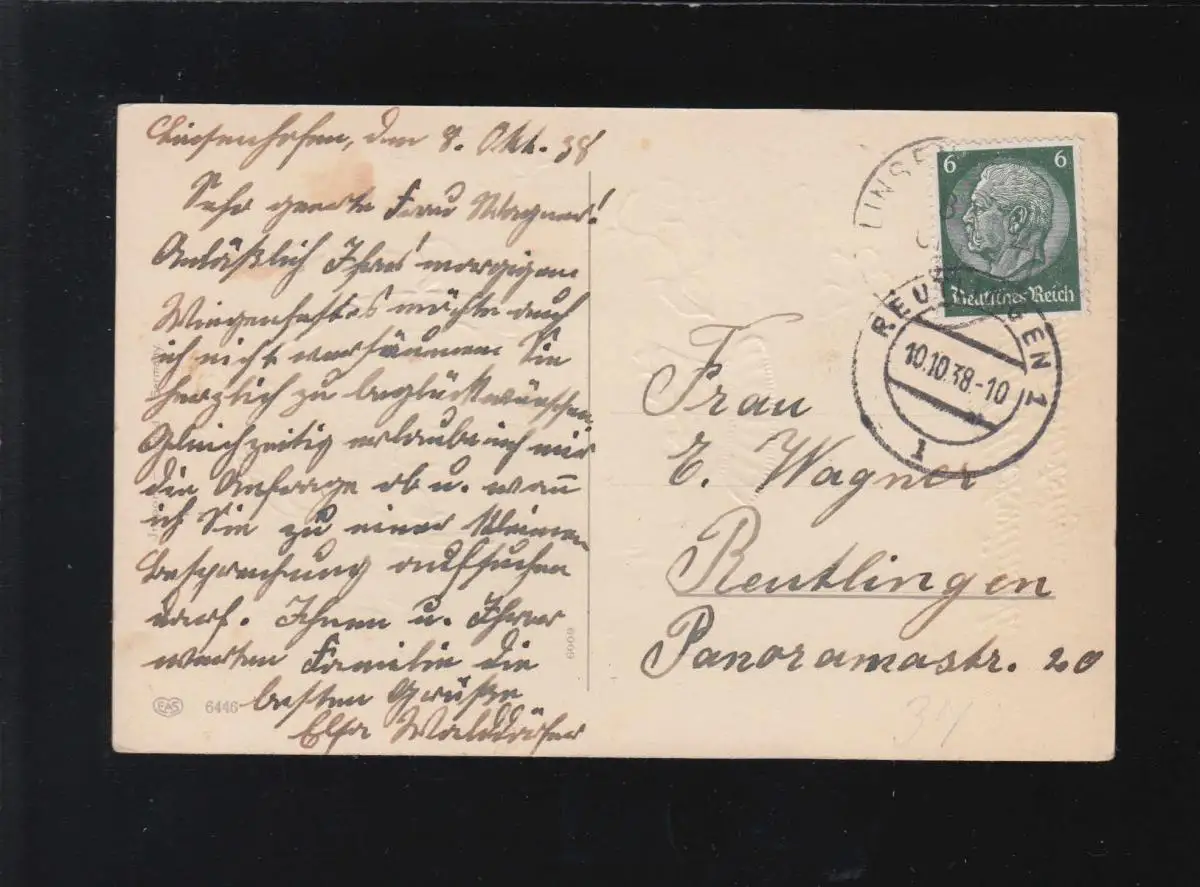 Linsenhofen, den 8. Okt. 38
Sehr geerte Frau Wagner!
Anläßlich Ihres morgigen
Wiegenfestes möchte auch
ich nicht versäumen Sie
herzlich zu beglückwünschen.
Gleichzeitig erlaube ich mir
die Anfrage ob u. wann
ich Sie zu einer kleinen
Besprechung aufsuchen
darf. Ihnen u. Ihrer
werten Familie die
besten Grüße
Elsa
EAS 6446
6009
6 6
Deutsches Reich
LINSE
REUTLINGEN 1
10.10.38.-10
1
Frau
E. Wagner
Reutlingen
Panoramastr. 20